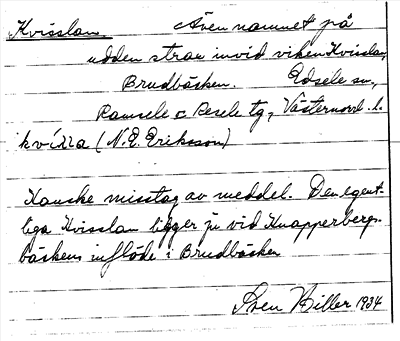 Kvisslan Även namnet på
udden strax invid viken Kvisslan,
Brudbäcken. Edsele sn,
Ramsele o. Resele tg, Västernorrl. l.
kvílla (N. E. Eriksson)
Kanske misstag av meddel. Den egent-
liga Kvisslan ligger ju vid Knapperbergs-
bäckens inflöde i Brudbäcken
Sven Hiller 1934